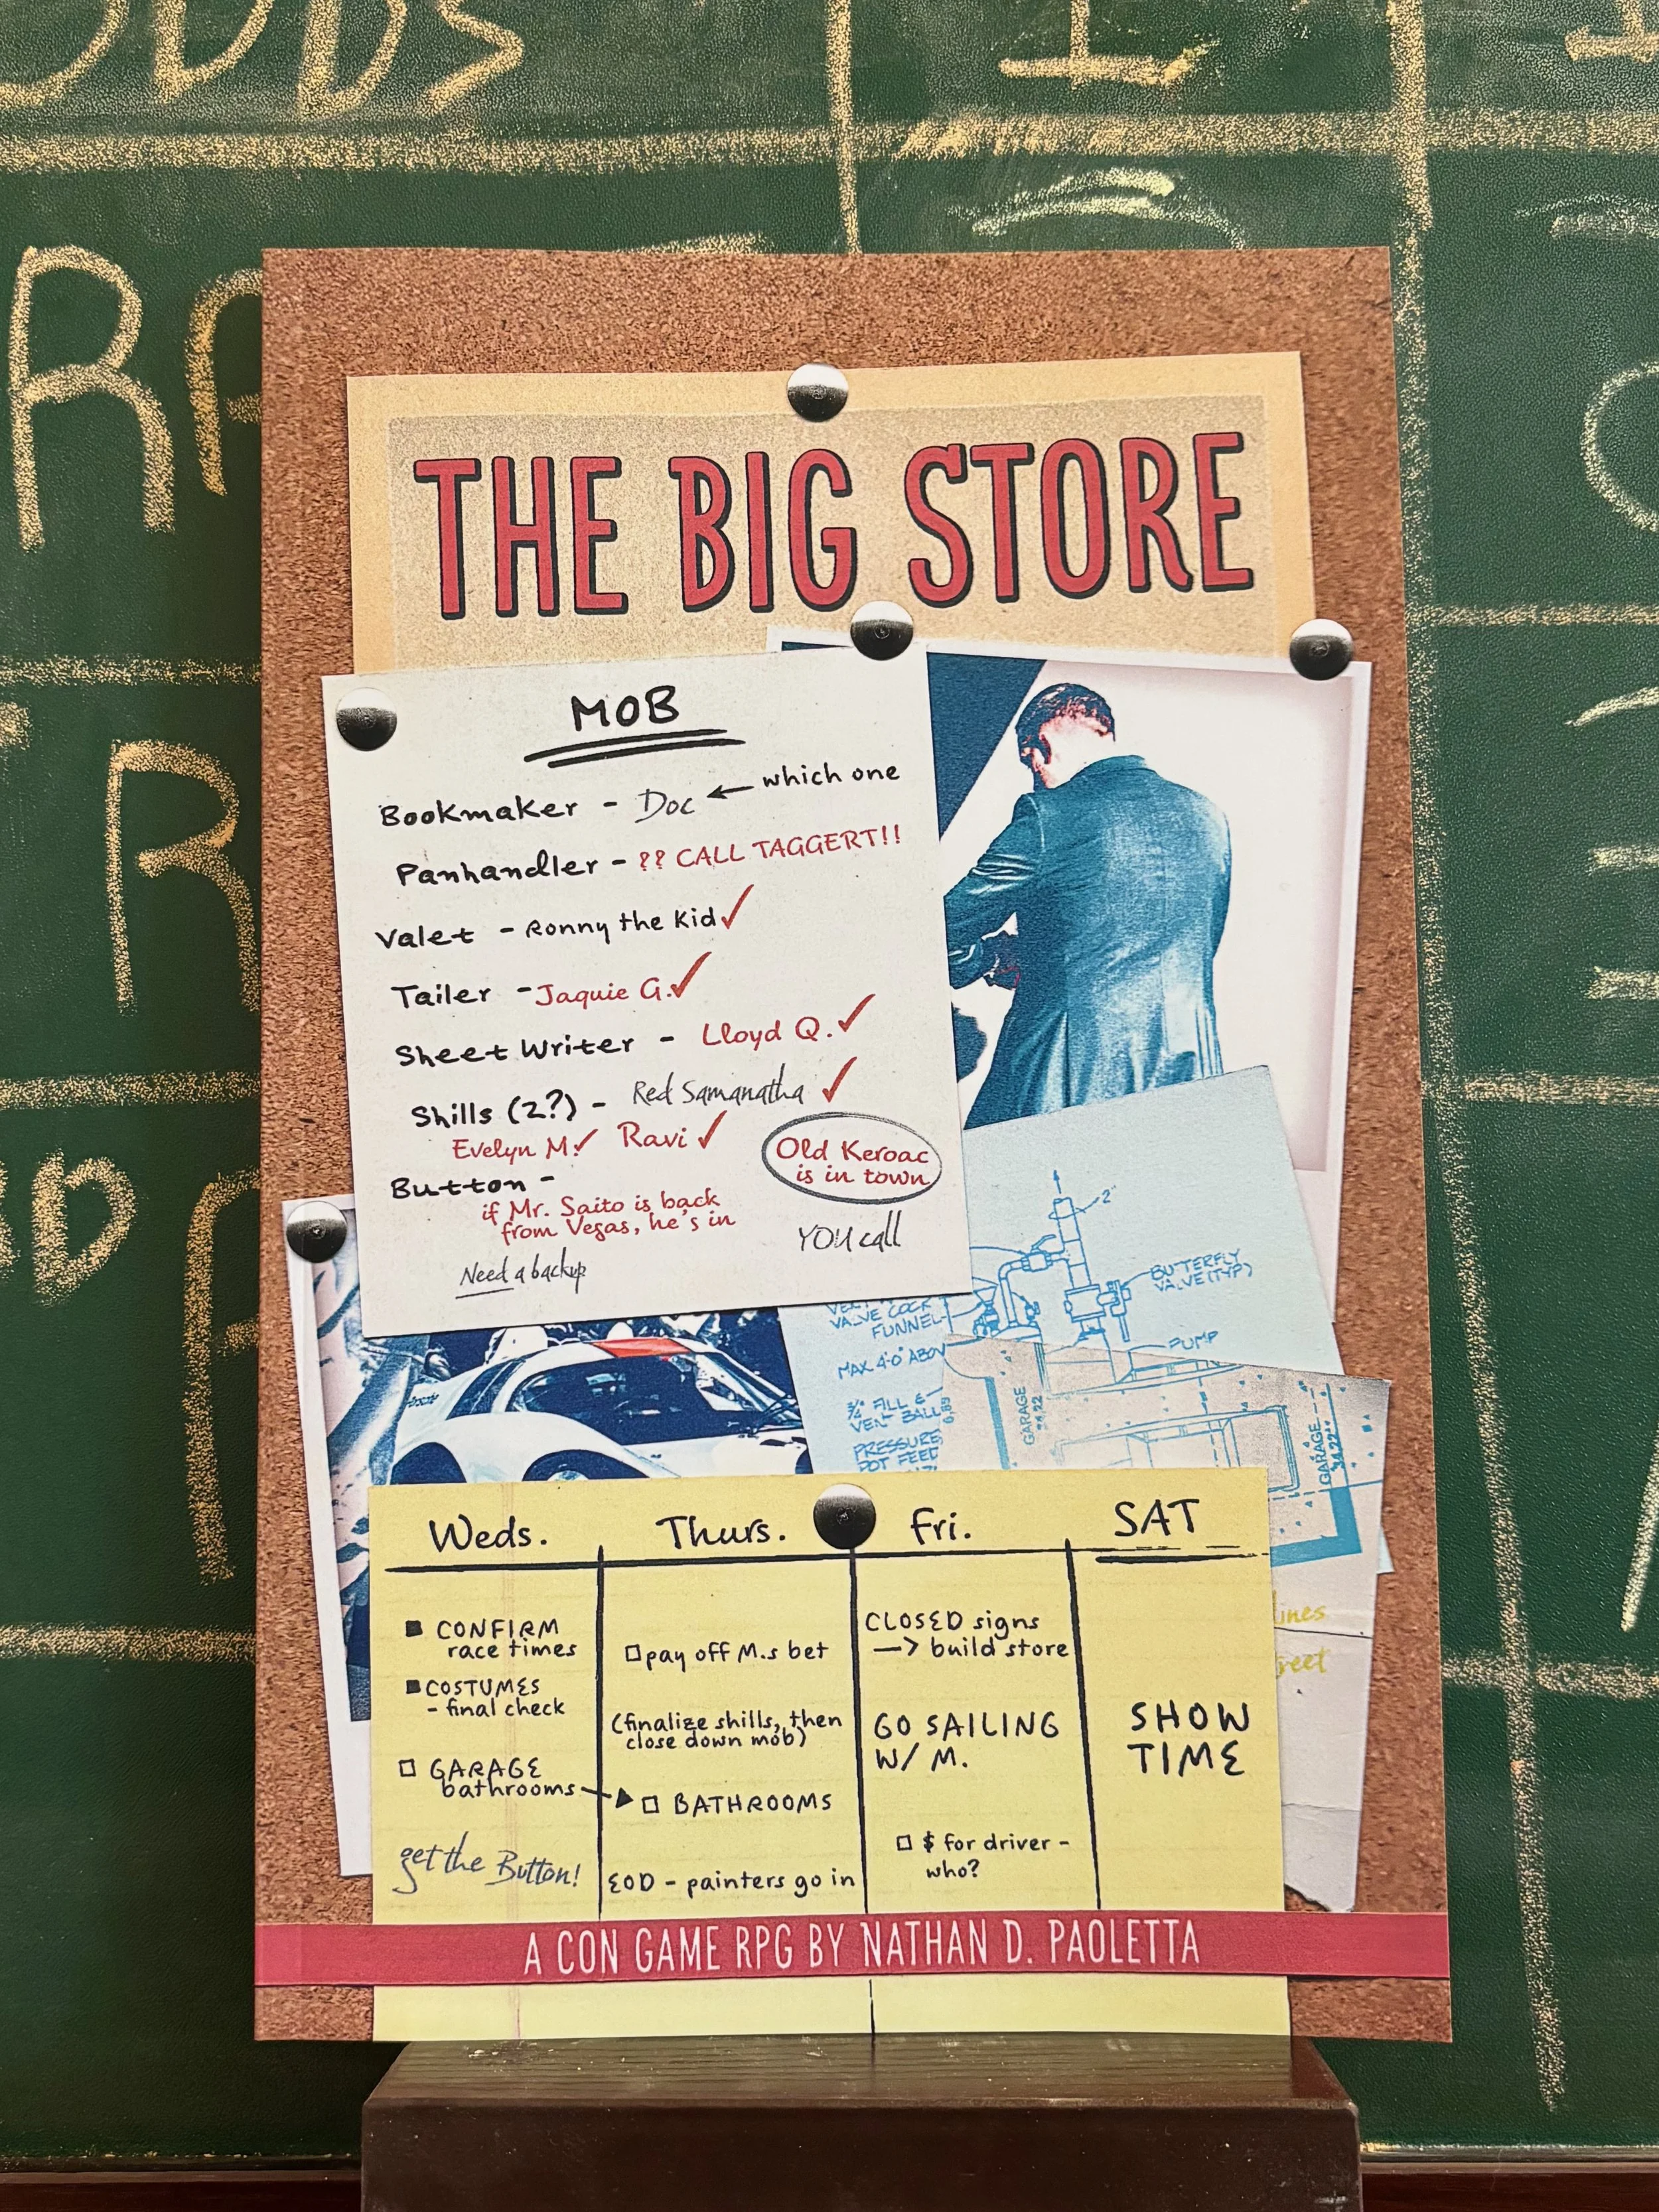 THE BIG STORE
MOB
Bookmaker - Doc ← which one
Panhandler - ?? CALL TAGGERT!!
Valet - Ronny the Kid ✓
Tailer - Jaquie G. ✓
Sheet Writer - Lloyd Q. ✓
Shills (2?) - Red Samanatha ✓
Evelyn M. ✓ Ravi ✓
Old Keroac
is in town
Button -
if Mr. Saito is back
from Vegas, he's in
YOU call
Need a backup
2"
BUTTERFLY
VALVE (TYP)
VALVE COCK
FUNNEL
PUMP
MAX 4'-0" ABOV
3/4" FILL &
VENT BALL
PRESSURE
POT FEED
GARAGE
GARAGE
34.22
Weds.
■ CONFIRM
race times
■ COSTUMES
- final check
□ GARAGE
bathrooms
get the Button!
Thurs.
□ pay off M.s bet
(finalize shills, then
close down mob)
□ BATHROOMS
EOD - painters go in
Fri.
CLOSED signs
—> build store
GO SAILING
W/ M.
□ $ for driver -
who?
SAT
SHOW
TIME
ines
reet
A CON GAME RPG BY NATHAN D. PAOLETTA